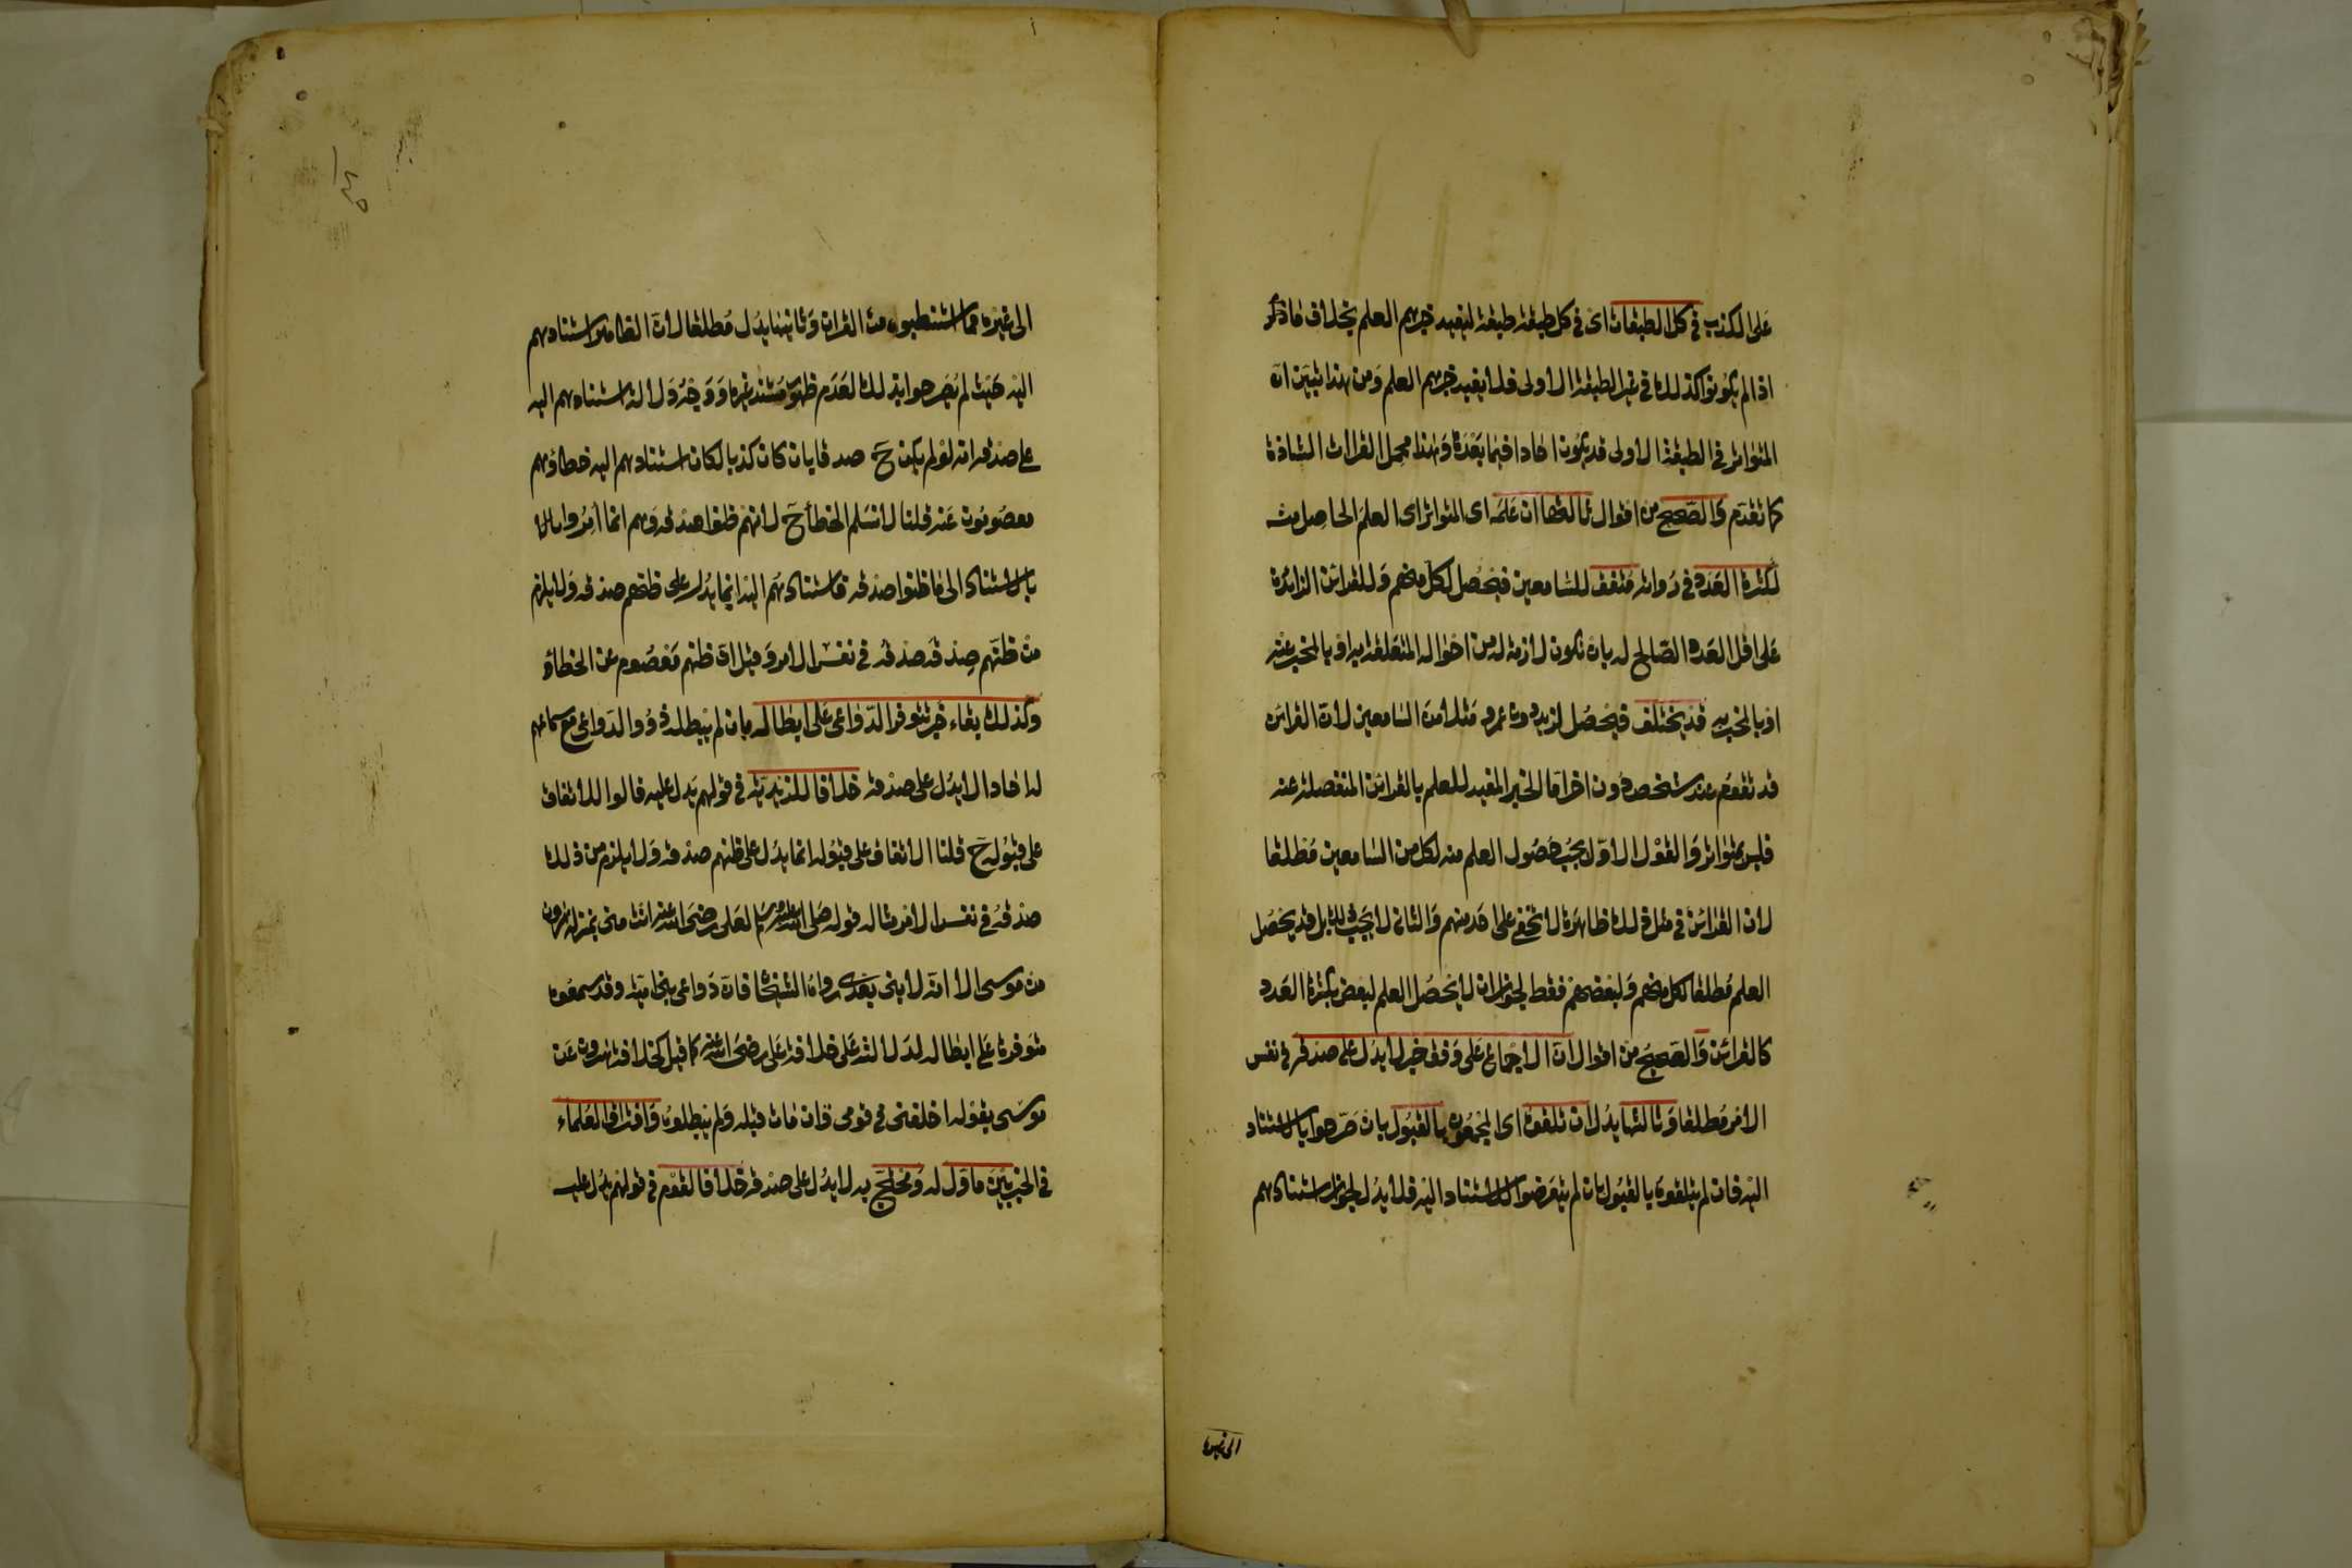 على الكذب في كل الطبقات اى في كل طبقة طبقة ليفيد خبرهم العلم بخلاف ما ذكر
اذا لم يكونوا كذلك في غير الطبقة الاولى فلا يفيد خبرهم العلم ومن هذا يتبين ان
المتواتر في الطبقة الاولى قد يكون احادا فيما بعدها وهذا محمل القراات الشاذة
كما تقدم والصحيح من اقوال ثالثها ان علمه اى المتواتر اى العلم الحاصل منه
لكثرة العدد في رواته متفق للسامعين فيحصل لكل منهم وللقرائن الزائدة
على اقل العدد الصالح له بان تكون لازمة له من احواله المتعلقة به او بالمخبر عنه
او بالمخبر به قد يختلف فيحصل لزيد دون عمرو مثلا من السامعين لان القرائن
قد تقوم عند شخص دون اخر اما الخبر المفيد للعلم بالقرائن المنفصلة عنه
فليس بمتواتر والقول الاول يجب حصول العلم منه لكل من السامعين مطلقا
لان القرائن في مثل ذلك ظاهرة لا تخفى على احد منهم والثاني لا يجب ذلك بل قد يحصل
العلم مطلقا لكل منهم ولبعضهم فقط لجواز ان لا يحصل العلم لبعض بكثرة العدد
كالقرائن والصحيح من اقوال ان الاجماع على وفق خبر لا يدل على صدقه في نفس
الامر مطلقا وثالثها يدل ان تلقوه اى المجمعون بالقبول بان صرحوا بالاستناد
اليه فان لم يتلقوه بالقبول بان لم يتعرضوا للاستناد اليه فلا يدل لجواز استنادهم
الى غيره
الى غيره مما استنطبوه من القران وثانيها يدل مطلقا لان الظاهر استنادهم
اليه حيث لم يصرحوا بذلك لعدم ظهور مستند غيره ووجه دلالة استنادهم اليه
على صدقه انه لو لم يكن ح صدقا بان كان كذبا لكان استنادهم اليه خطا وهم
معصومون عنه قلنا لا نسلم الخطأ ح لانهم ظنوا صدقه وهم انما امروا
بالاستناد الى ما ظنوا صدقه فاستنادهم اليه انما يدل على ظنهم صدقه ولا يلزم
من ظنهم صدقه صدقه في نفس الامر وقيل ان ظنهم معصوم عن الخطأ
وكذلك بقاء خبر تتوفر الدواعي على ابطاله بان لم يبطله ذوو الدواعي مع سماعهم
له احادا لا يدل على صدقه خلافا للزيدية في قولهم يدل عليه قالوا للاتفاق
على قبوله ح قلنا الاتفاق على قبوله انما يدل على ظنهم صدقه ولا يلزم من ذلك
صدقه في نفس الامر مثاله قوله صلى الله عليه وسلم لعلي رضي الله عنه انت مني بمنزلة هرون
من موسى الا انه لا نبي بعدي رواه الشيخان فان دواعي بني امية وقد سمعوه
متوفرة على ابطاله لدلالته على خلافة علي رضي الله عنه كما قيل كخلافة هرون عن
موسى بقوله اخلفني في قومي وان مات قبله ولم يبطلوه وافتراق العلماء
في الخبر بين ماول له ومحتج به لا يدل على صدقه خلافا لقوم في قولهم يدل عليه